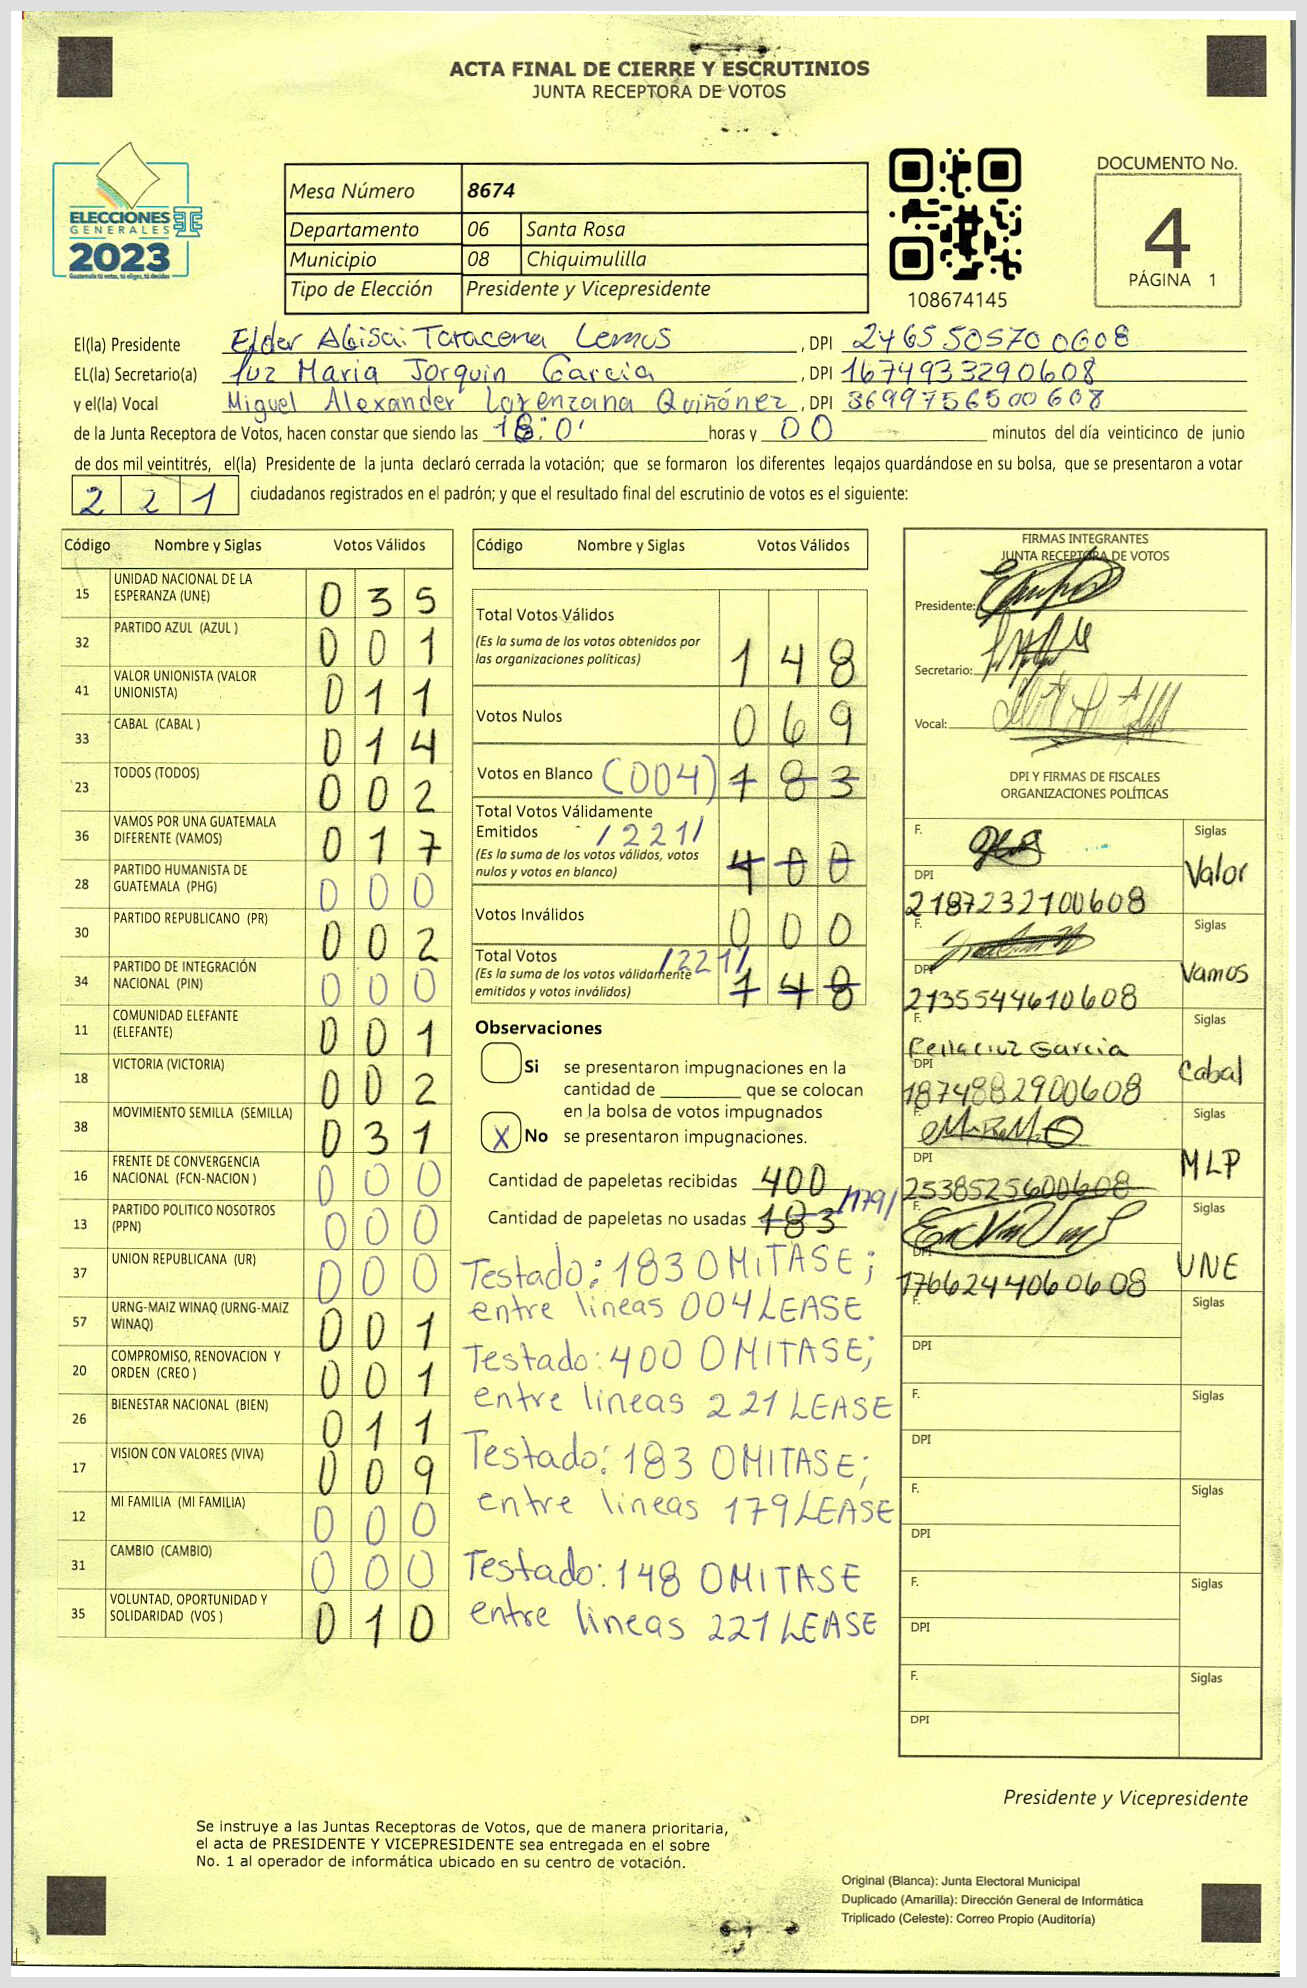 ACTA FINAL DE CIERRE Y ESCRUTINIOS
JUNTA RECEPTORA DE VOTOS
ELECCIONES
GENERALES
2023
Mesa Número 8674
Departamento 06 Santa Rosa
Municipio 08 Chiquimulilla
Tipo de Elección Presidente y Vicepresidente
108674145
DOCUMENTO No.
4
PÁGINA 1
El(la) Presidente Elder Abisai Taracena Lemus, DPI 2465505700608
EL(la) Secretario(a) Luz Maria Jorquin Garcia, DPI 1674933290608
y el(la) Vocal Miguel Alexander Lorenzana Quiñónez, DPI 3699756500608
de la Junta Receptora de Votos, hacen constar que siendo las horas y 00 minutos del día veinticinco de junio
de dos mil veintitrés, el(la) Presidente de la junta declaró cerrada la votación; que se formaron los diferentes legajos guardándose en su bolsa, que se presentaron a votar
2 2 1 ciudadanos registrados en el padrón; y que el resultado final del escrutinio de votos es el siguiente:
Código Nombre y Siglas Votos Válidos
15 UNIDAD NACIONAL DE LA ESPERANZA (UNE) 0 3 5
32 PARTIDO AZUL (AZUL ) 0 0 1
41 VALOR UNIONISTA (VALOR UNIONISTA) 0 1 1
33 CABAL (CABAL ) 0 1 4
23 TODOS (TODOS) 0 0 2
36 VAMOS POR UNA GUATEMALA DIFERENTE (VAMOS) 0 1 7
28 PARTIDO HUMANISTA DE GUATEMALA (PHG) 0 0 0
30 PARTIDO REPUBLICANO (PR) 0 0 2
34 PARTIDO DE INTEGRACIÓN NACIONAL (PIN) 0 0 0
11 COMUNIDAD ELEFANTE (ELEFANTE) 0 0 1
18 VICTORIA (VICTORIA) 0 0 2
38 MOVIMIENTO SEMILLA (SEMILLA) 0 3 1
16 FRENTE DE CONVERGENCIA NACIONAL (FCN-NACION ) 0 0 0
13 PARTIDO POLITICO NOSOTROS (PPN) 0 0 0
37 UNION REPUBLICANA (UR) 0 0 0
57 URNG-MAIZ WINAQ (URNG-MAIZ WINAQ) 0 0 1
20 COMPROMISO, RENOVACION Y ORDEN (CREO ) 0 0 1
26 BIENESTAR NACIONAL (BIEN) 0 1 1
17 VISION CON VALORES (VIVA) 0 0 9
12 MI FAMILIA (MI FAMILIA) 0 0 0
31 CAMBIO (CAMBIO) 0 0 0
35 VOLUNTAD, OPORTUNIDAD Y SOLIDARIDAD (VOS ) 0 1 0
Código Nombre y Siglas Votos Válidos
Total Votos Válidos
(Es la suma de los votos obtenidos por
las organizaciones políticas) 1 4 8
Votos Nulos 0 6 9
Votos en Blanco (004) 1 8 3
Total Votos Válidamente
Emitidos /221/
(Es la suma de los votos válidos, votos
nulos y votos en blanco) 4 0 0
Votos Inválidos 0 0 0
Total Votos /221/
(Es la suma de los votos válidamente
emitidos y votos inválidos) 1 4 8
Observaciones
Si se presentaron impugnaciones en la
cantidad de ________ que se colocan
en la bolsa de votos impugnados
X No se presentaron impugnaciones.
Cantidad de papeletas recibidas 400
Cantidad de papeletas no usadas 183 /179/
Testado: 183 OMITASE;
entre lineas 004 LEASE
Testado: 400 OMITASE;
entre lineas 221 LEASE
Testado: 183 OMITASE;
entre lineas 179 LEASE
Testado: 148 OMITASE
entre lineas 221 LEASE
FIRMAS INTEGRANTES
JUNTA RECEPTORA DE VOTOS
Presidente:
Secretario:
Vocal:
DPI Y FIRMAS DE FISCALES
ORGANIZACIONES POLÍTICAS
F. Siglas
DPI Valor
2187232100608
F. Siglas
DPI Vamos
2135544610608
F. Siglas
Garcia
DPI Cabal
1874882900608
F. Siglas
DPI MLP
2538525600608
F. Siglas
DPI UNE
1766244060608
F. Siglas
DPI
F. Siglas
DPI
F. Siglas
DPI
F. Siglas
DPI
F. Siglas
DPI
Presidente y Vicepresidente
Se instruye a las Juntas Receptoras de Votos, que de manera prioritaria,
el acta de PRESIDENTE Y VICEPRESIDENTE sea entregada en el sobre
No. 1 al operador de informática ubicado en su centro de votación.
Original (Blanca): Junta Electoral Municipal
Duplicado (Amarilla): Dirección General de Informática
Triplicado (Celeste): Correo Propio (Auditoría)